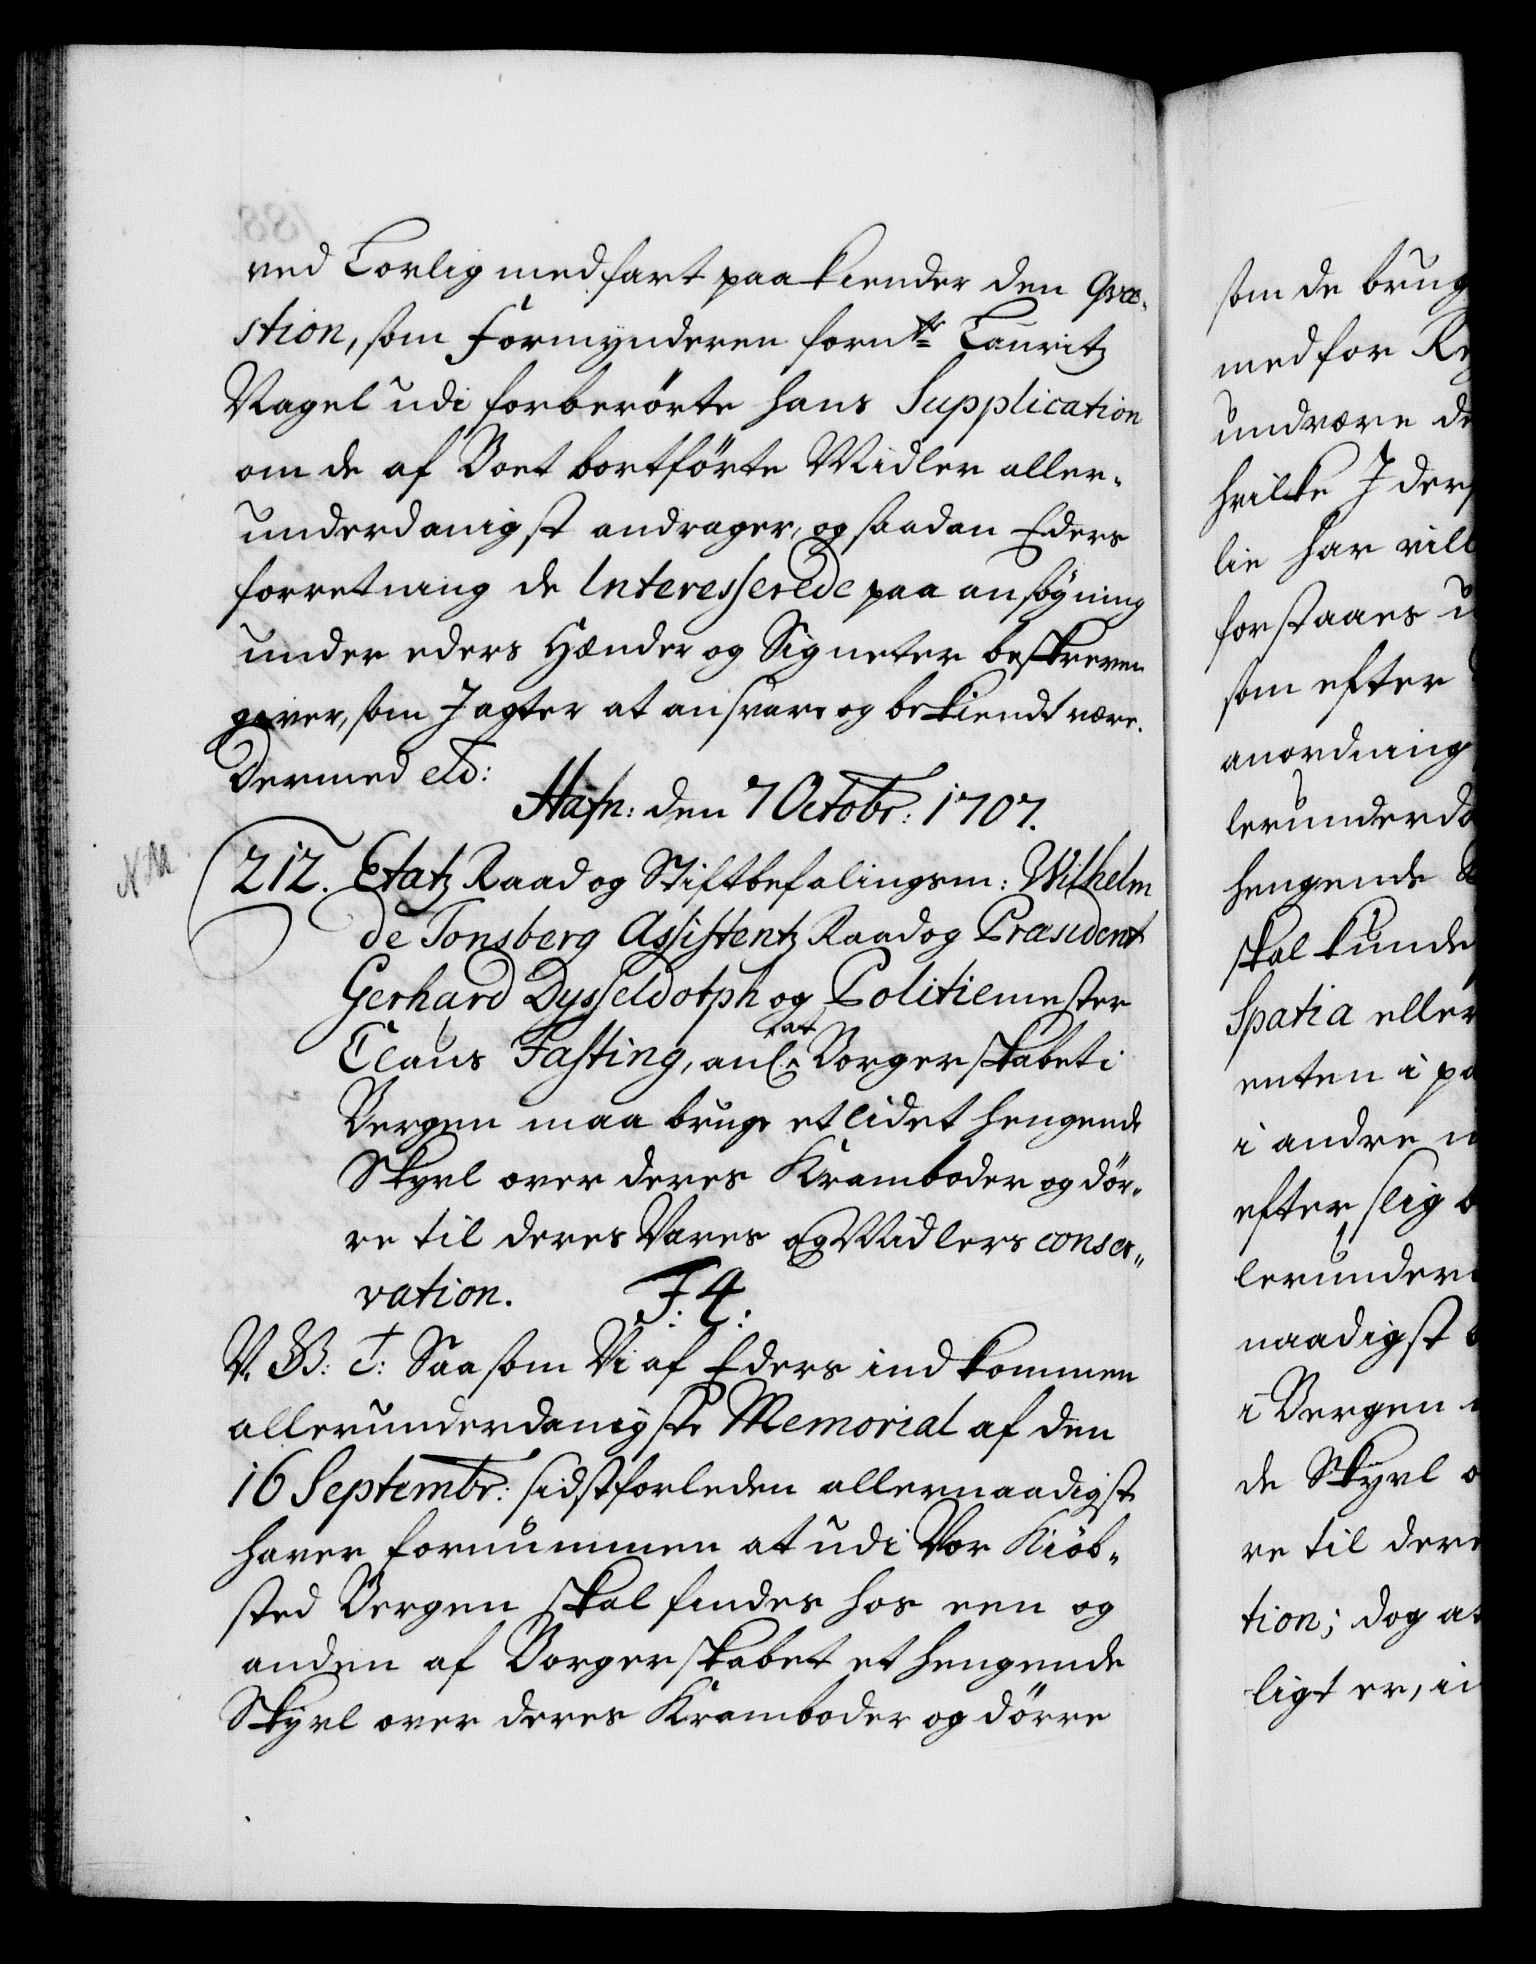 ved Lovlig medfart paakiender den Qvæ-
stion, som Formynderen fornte Lauritz
Nagel udi forberörte hans Supplication
om de af Boet bortförte Midler aller-
underdanigst andrager, og saadan Eders
forretning de Interesserede paa ansögning
under eders Hænder og Signeter beskreven
giver, som I agter at ansvare og bekiendt være.
Dermed etc:
Hafn: den 7 Octobr: 1707.
NM
212. Etatz Raad og Stiftbefalingsm: Wilhelm
de Tonsberg Assistentz Raad og Præsident
Gerhard Dysseldorph og Politiemester
Claus Fasting, anl: at Borgerskabet i
Bergen maa bruge et lidet hengende
Skyul over deres Kramboder og dör-
re til deres Vares og Midlers conser-
vation. F: 4:
V. G: T: Saasom Vi af Eders indkommen
allerunderdanigste Memorial af den
16 Septembr: sidstforleden allernaadigst
haver fornummen at udi Vor Kiöb-
sted Bergen skal findes hos een og
anden af Borgerskabet et hengende
Skyul over deres Kramboder og dörre
som de brug
medfor Re
undvære de
hvilke I der
lie har vill
forstaaes u
som efter
anordning
lerunderda
hengende
skal kunde
Spatia eller
enten i pa
i andre
efter slig
lerunder
naadigst
i Bergen
de Skyul o
re til dere
tion; dog at
ligt er, i